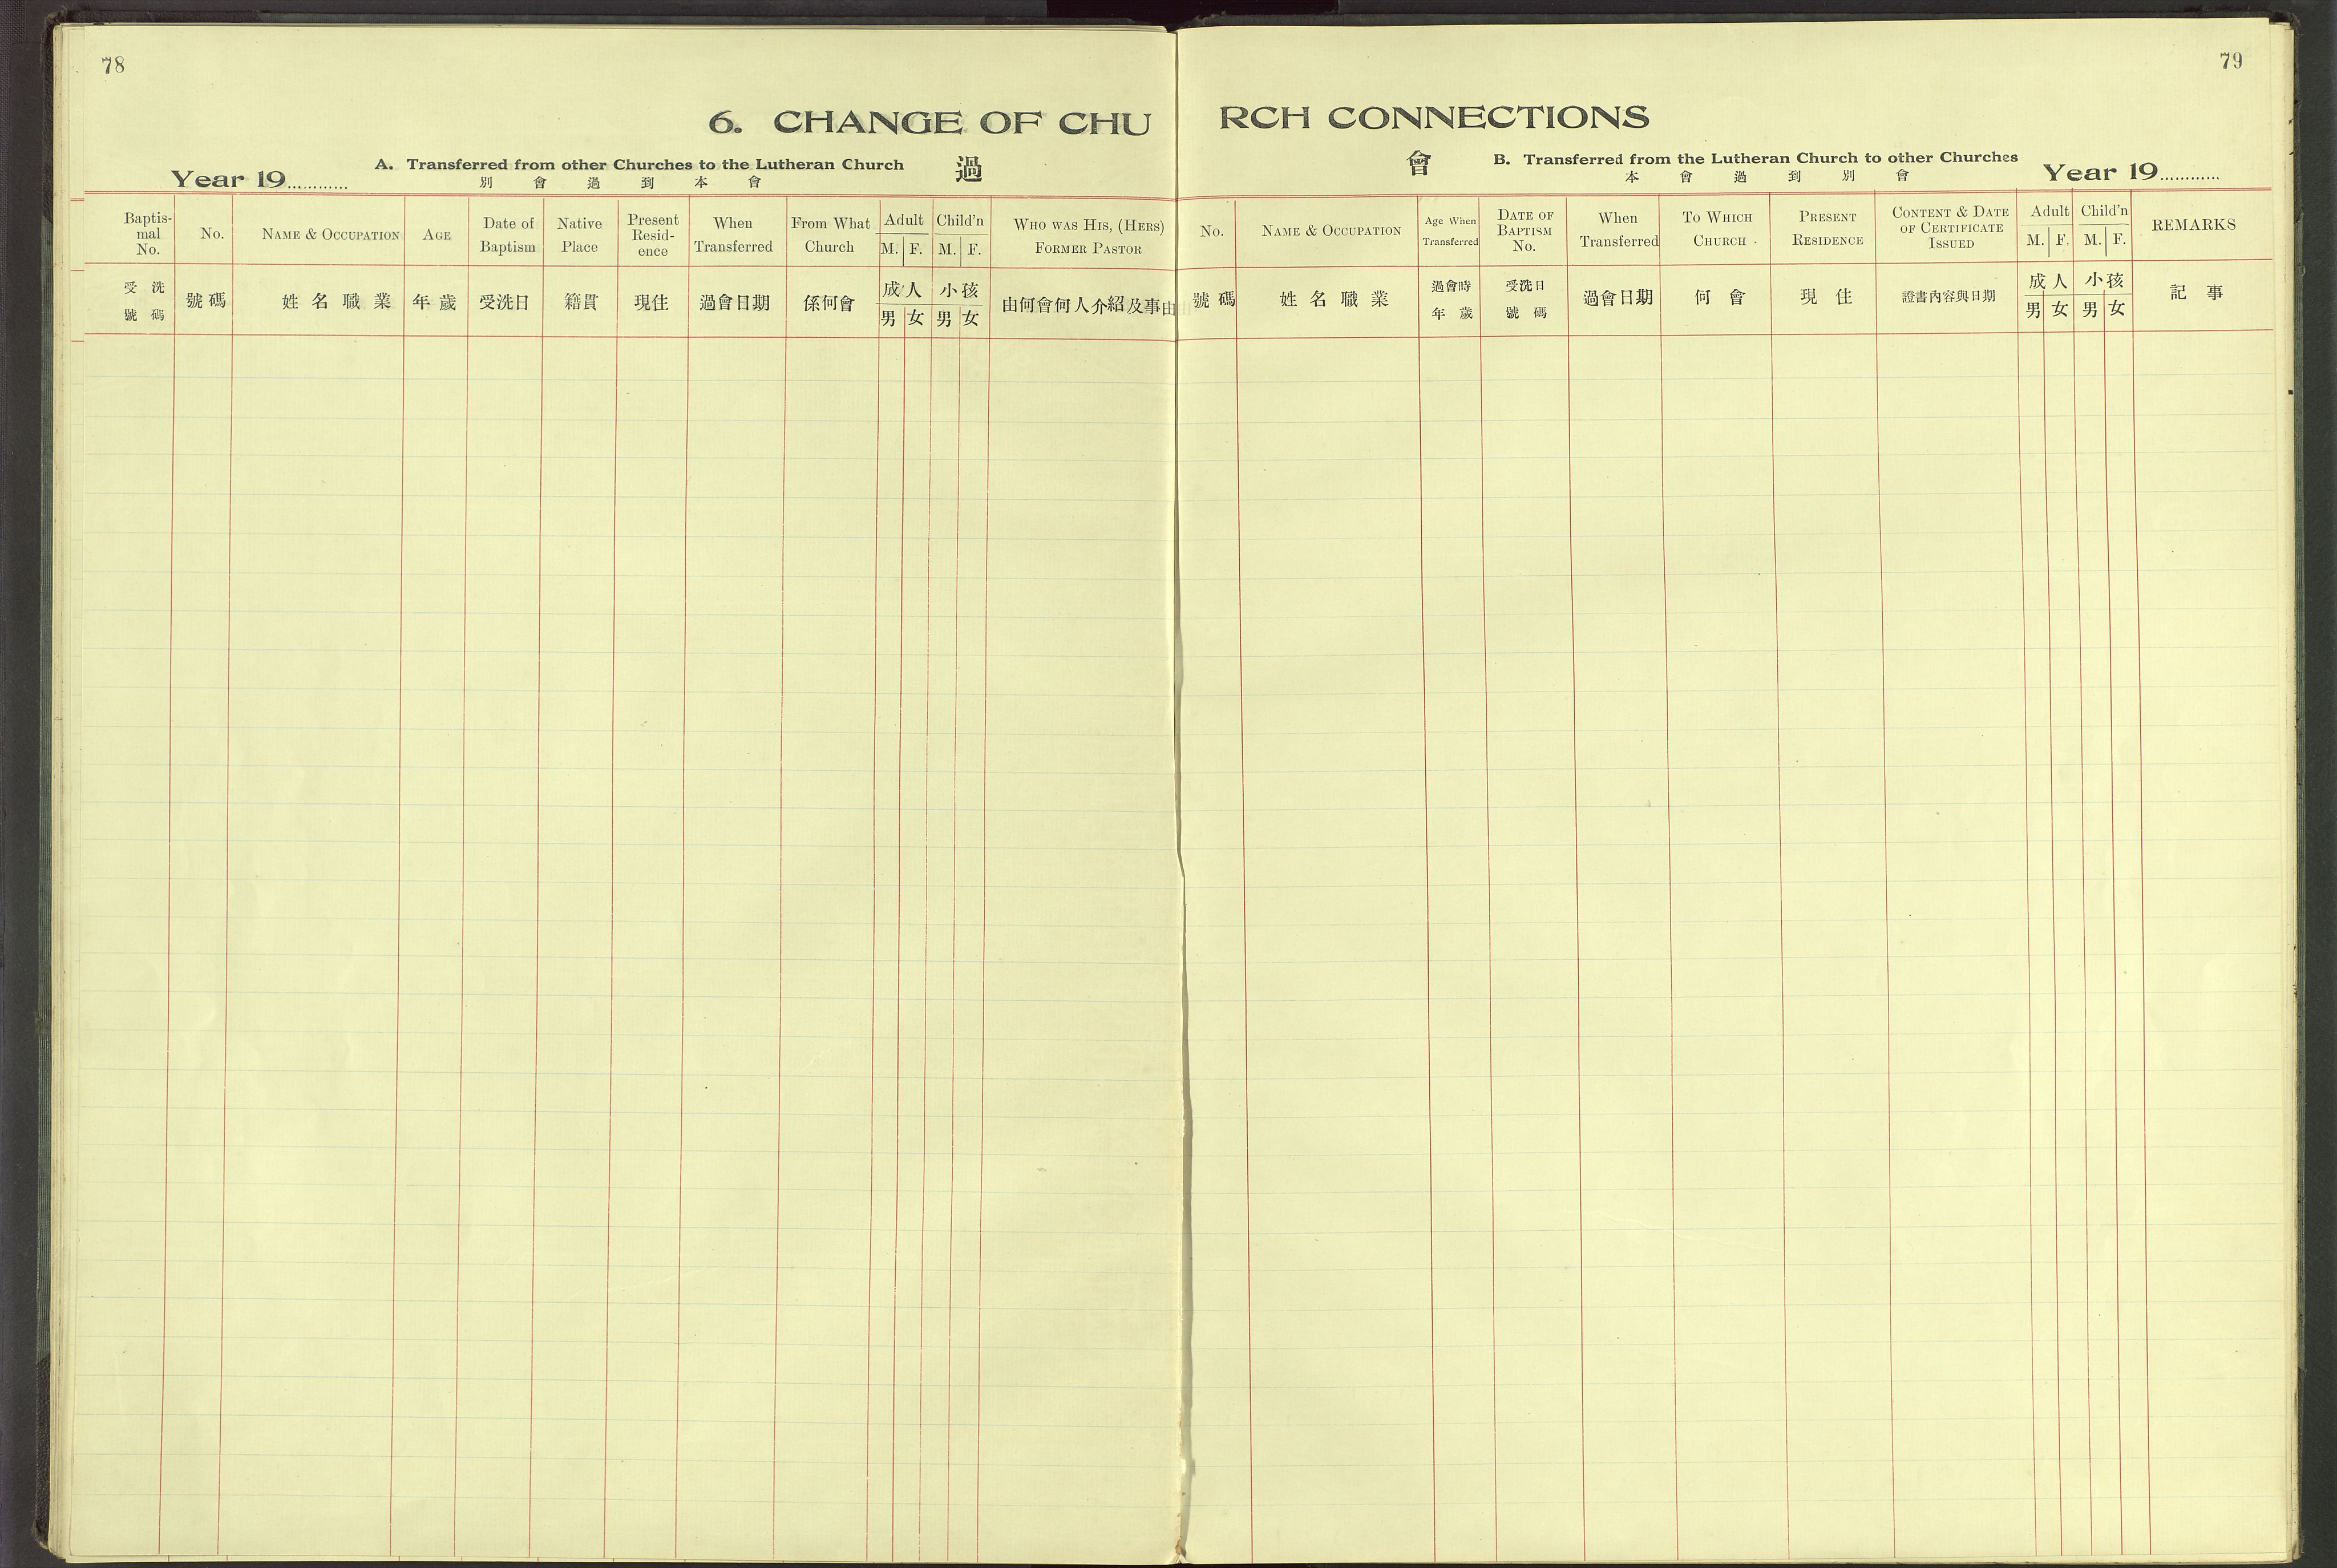 78
6. CHANGE OF CHU
A. Transferred from other Churches to the Lutheran Church 過
Year 19............ 別 會 過 到 本 會
Baptismal No. | No. | NAME & OCCUPATION | AGE | Date of Baptism | Native Place | Present Residence | When Transferred | From What Church | Adult M. F. | Child'n M. F. | WHO WAS HIS, (HERS) FORMER PASTOR
受洗號碼 | 號碼 | 姓名職業 | 年歲 | 受洗日 | 籍貫 | 現住 | 過會日期 | 係何會 | 成人 男 女 | 小孩 男 女 | 由何會何人介紹及事由
79
RCH CONNECTIONS
會 B. Transferred from the Lutheran Church to other Churches
本 會 過 到 別 會 Year 19............
No. | NAME & OCCUPATION | Age When Transferred | DATE OF BAPTISM No. | When Transferred | TO WHICH CHURCH | PRESENT RESIDENCE | CONTENT & DATE OF CERTIFICATE ISSUED | Adult M. F. | Child'n M. F. | REMARKS
號碼 | 姓名職業 | 過會時年歲 | 受洗日號碼 | 過會日期 | 何會 | 現住 | 證書內容與日期 | 成人 男 女 | 小孩 男 女 | 記事